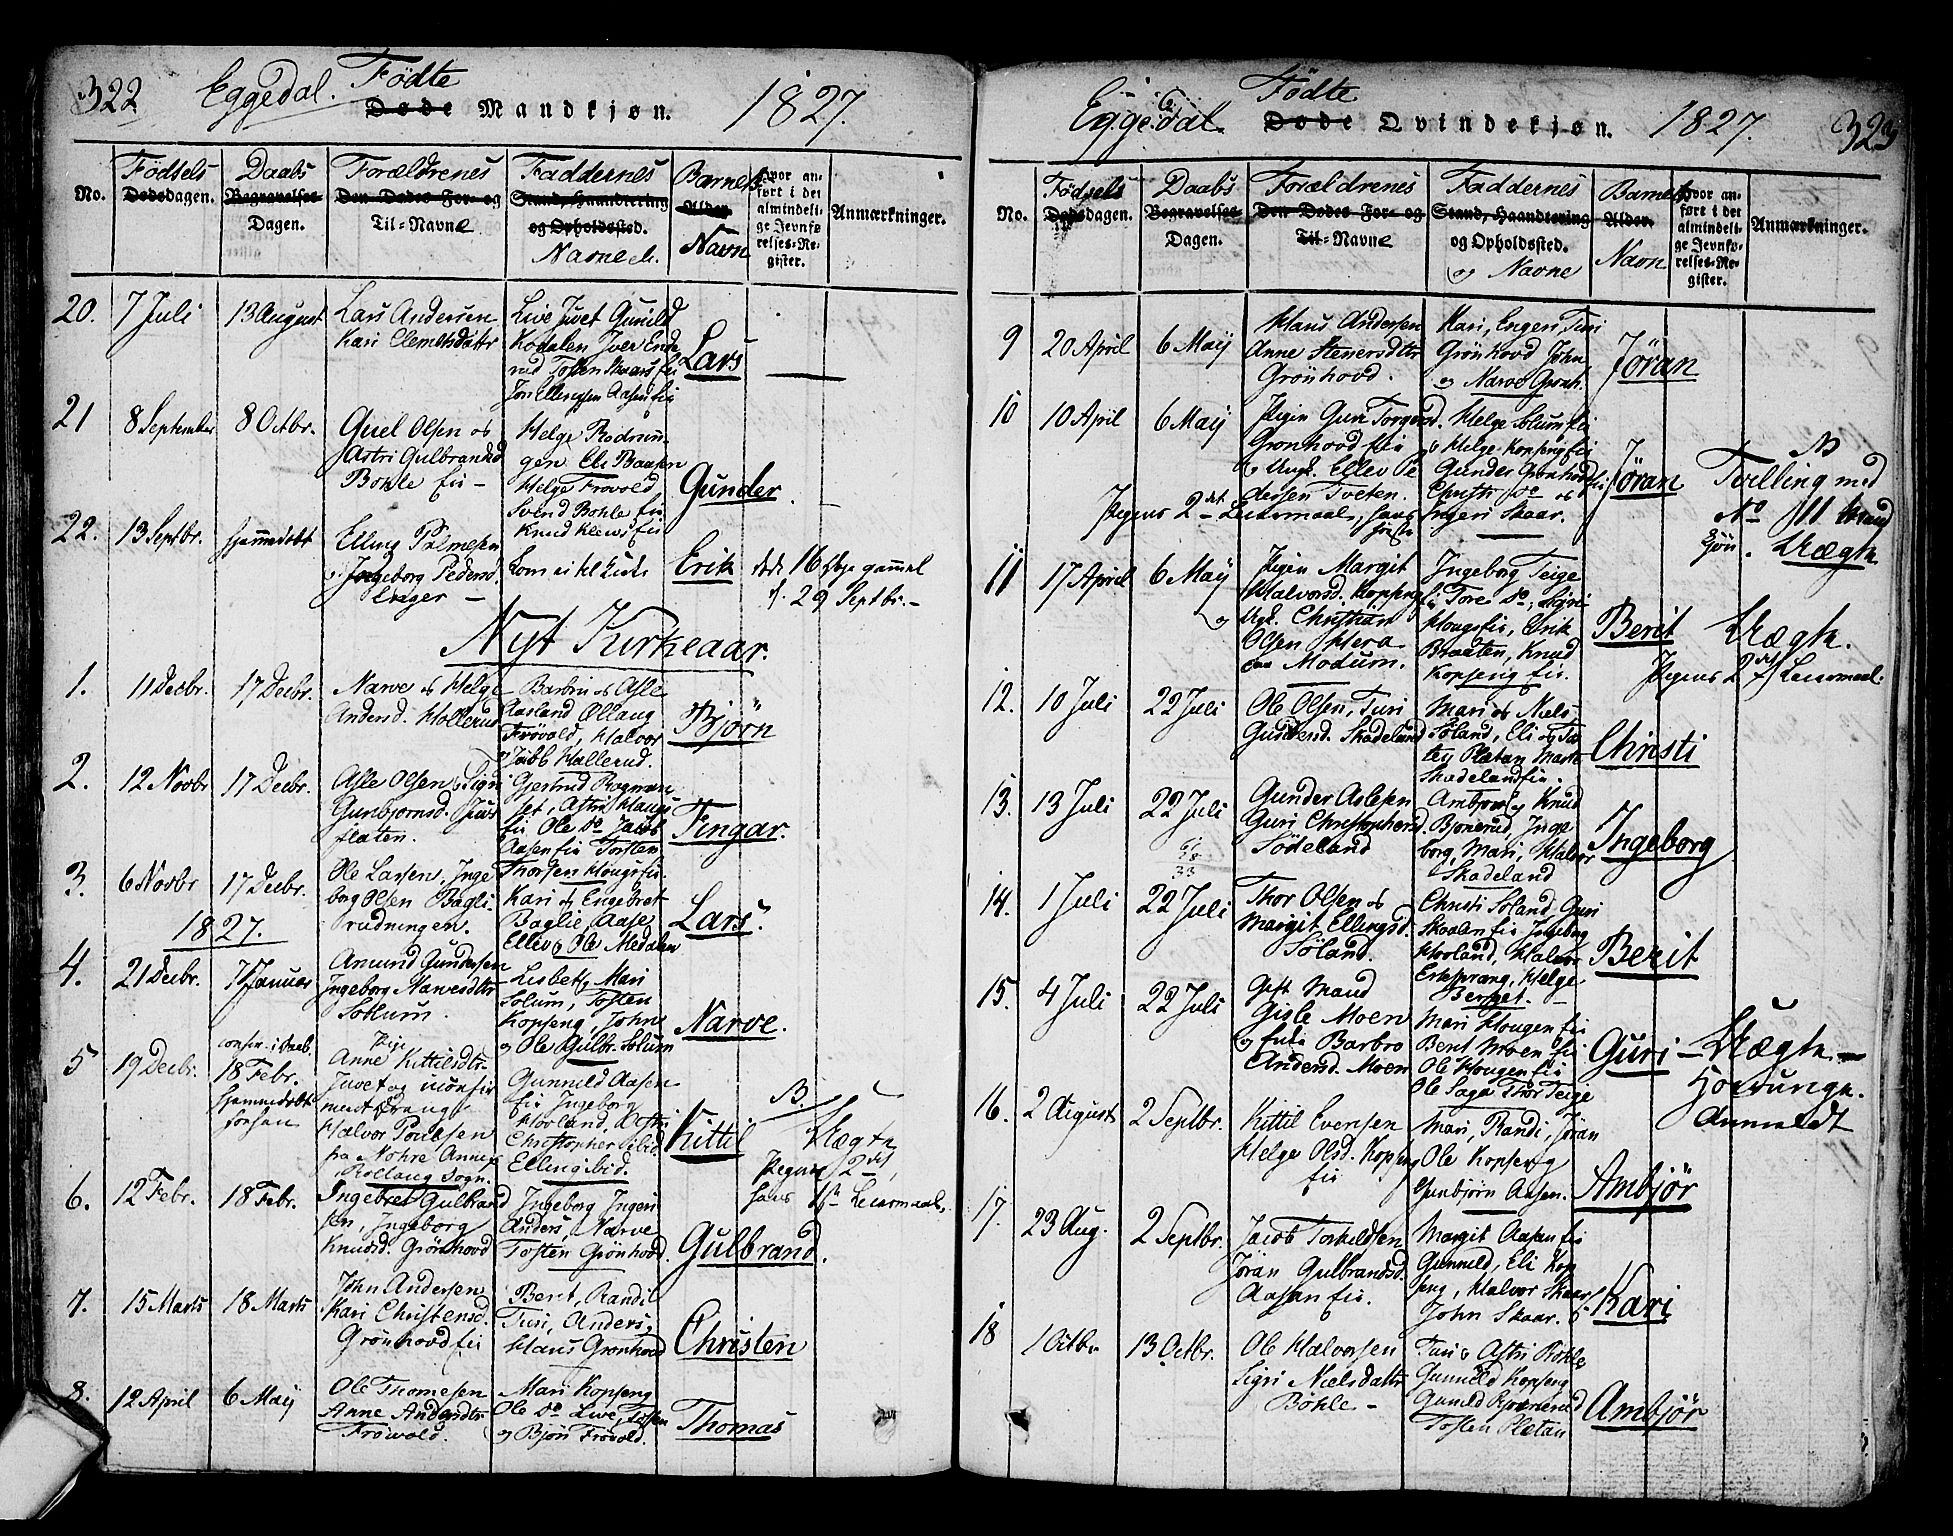 322 Eggedal. Fødte
Døde Mandkjøn. 1827.
No.
Fødsels
Dødsdagen.
Daabs
Begravelses
Dagen.
Forældrenes
Den Dødes For- og
Til-Navne
Faddernes
Stand, Haandtering
og Opholdssted.
Navne
Barnets
Alder
Navn
Hvor an-
ført i det
almindeli-
ge Jevnfø-
relses-Re-
gister.
Anmærkninger.
20. 7 Juli 13 August
Lars Andersen
Kari Clemetsdattr
Live Juvet Gunild
Kodalen Iver Ende
rud Tosten Skaars
Lars
21 8 September 8 Octbr.
Olsen og
Astri Gulbrandsd
Bohle
Helge Rodnin
gen Eli Baasen
Helge Frøvold
Svend Bohle
Knud
Gunder.
22. 13 Septbr. hjemmedøbt
Elling Palmesen
Ingeborg Pedersd.
Erik
døde 16 Dage gammel
29 Septbr.
Nyt Kirkeaar.
1. 11 Decbr. 17 Decbr.
Narve og Helge
Andersd. Hollerud
Barbru og Asle
Aasland
Frövold, Halvor
Jacob Hallerud.
Björn
2. 12 Novbr 17 Decbr.
Asle Olsen Sigri
Gunbjornsd.
flaten.
Gjertrud Ragnan
Ole Do Jacob
Aasen Torsten
Fingar.
3. 6 Novbr 17 Decbr.
Ole Larsen, Inge
borg Olsen Bagli
rudningen.
Thorsen
Kari og Engebret
Baglie, Aase
Ellev og Ole Medalen
Lars.
1827.
4. 21 Decbr. 7 Januar
Amund Gundersen
Ingeborg Narvesdttr
Solum.
Lisbet, Mari
Solum, Tosten
Kopseng, John
og Ole Gulbr. Solum
Narve.
5 19 Decbr.
18 Febr.
hjemmedøbt
forhen
Pige
Anne Kittilsdtr
Juvet og
Halvor Poulsen
fra Nohre
Rollaug Sogn.
Gunnild Aasen
Ingeborg
Hovland, Astri
Christopher
Kittil
B.
Uægte
Pigens 2det,
hans 1ste Leiermaal.
6. 12 Febr. 18 Febr.
Ingebret Gulbrand
sen, Ingeborg
Knudsd. Grönhovd
Ingeborg Ingeri
Anders, Narve
Tosten Grönhovd.
Gulbrand.
7. 15 Marts 18 Marts
John Andersen
Kari Christensd.
Grönhovd
Berit, Randi
Turi, Anders,
Hans Grönhovd
Christen
8. 12 April 6 Maij
Ole Thomesen
Anne Andersdtr
Frövold.
Mari Kopseng
Ole Do Live, Tosten
og Björn Frövold.
Thomas
Eggedal. Fødte
Døde Qvindekjøn. 1827. 323
No.
Fødsels
Dødsdagen.
Daabs
Begravelses-
Dagen.
Forældrenes
Den Dødes For- og
Til-Navne
Faddernes
Stand, Haandtering
og Opholdssted.
og Navne
Barnets
Alder
Navn
Hvor an-
ført i det
almindeli-
ge Jevnfø-
relses-Re-
gister.
Anmærkninger.
9 20 April 6 Maij
Hans Andersen
Anne Stenersdttr
Grönhovd.
Kari, Engen, Turi
Grönhovd John
og Narve Grönh.
Jöran
10 10 April 6 Maij
Pigen Guri Torgersd.
Grönhovd
og Ungk. Ellev Pe
dersen Tveten.
Pigens 2det Leiermaal, hans
første
Helge Solum
Helge Kopseng
Gunder Grönhovd
Christi Do og
Ingeri Skaar.
Jöran
Tvilling med
No 11 Mand
kjön. Uægte
11 17 April 6 Maij
Pigen Margit
Halvorsd. Kopseng
og Ungk. Christian
Olsen Hera
Modum.
Ingeborg Teige
Tore Do, Sigri
Hougs, Erik
Braaten, Knud
Kopseng
Berit
Uægte.
Pigens 2det Leiermaal.
12. 10 Juli 22 Juli
Ole Olsen, Turi
Skadeland
Mari og Niels
Söland, Eli og
Plætan
Skadeland
Christi
13. 13 Juli 22 Juli
Gunder Aslesen
Guri Christophersd.
Södeland
Ambjör og Knud
Bjönerud, Inge
borg, Mari, Halvor
Skadeland
Ingeborg
61
28
33
14. 1 Juli 22 Juli
Thor Olsen og
Margit Ellingsd.
Söland.
Christi Söland, Guri
Skaalen Ingeborg
Hovland, Halvor
Eresprang, Helge
Berget.
Berit
15. 4 Juli 22 Juli
Gift Mand
Gisle Moen
og Enke Barbro
Andersd. Moen
Mari Hougen
Berit Moen
Ole Hougen
Ole Saga Thor Teige
Guri
Uægte
Anmeldt
16. 2 Augusts 2 Septbr.
Kittil Evensen
Helge Olsd. Kopseng
Mari, Randi, Jöran
Ole Kopseng
Gunbjörn Aasen.
Ambjör
17. 23 Aug. 2 Septbr.
Jacob Torkildsen
Jöran Gulbrandsd.
Aasan
Margit Aasan
Gunnild, Eli Kop
seng, Halvor Skaar
John Skaar.
Kari
18 1 Octbr 13 Octbr.
Ole Halvorsen
Sigri Nielsdattr
Böhle
Turi og Astri Böhle
Gunnild Kopseng
Gunild
Tosten Plætan
Ambjör